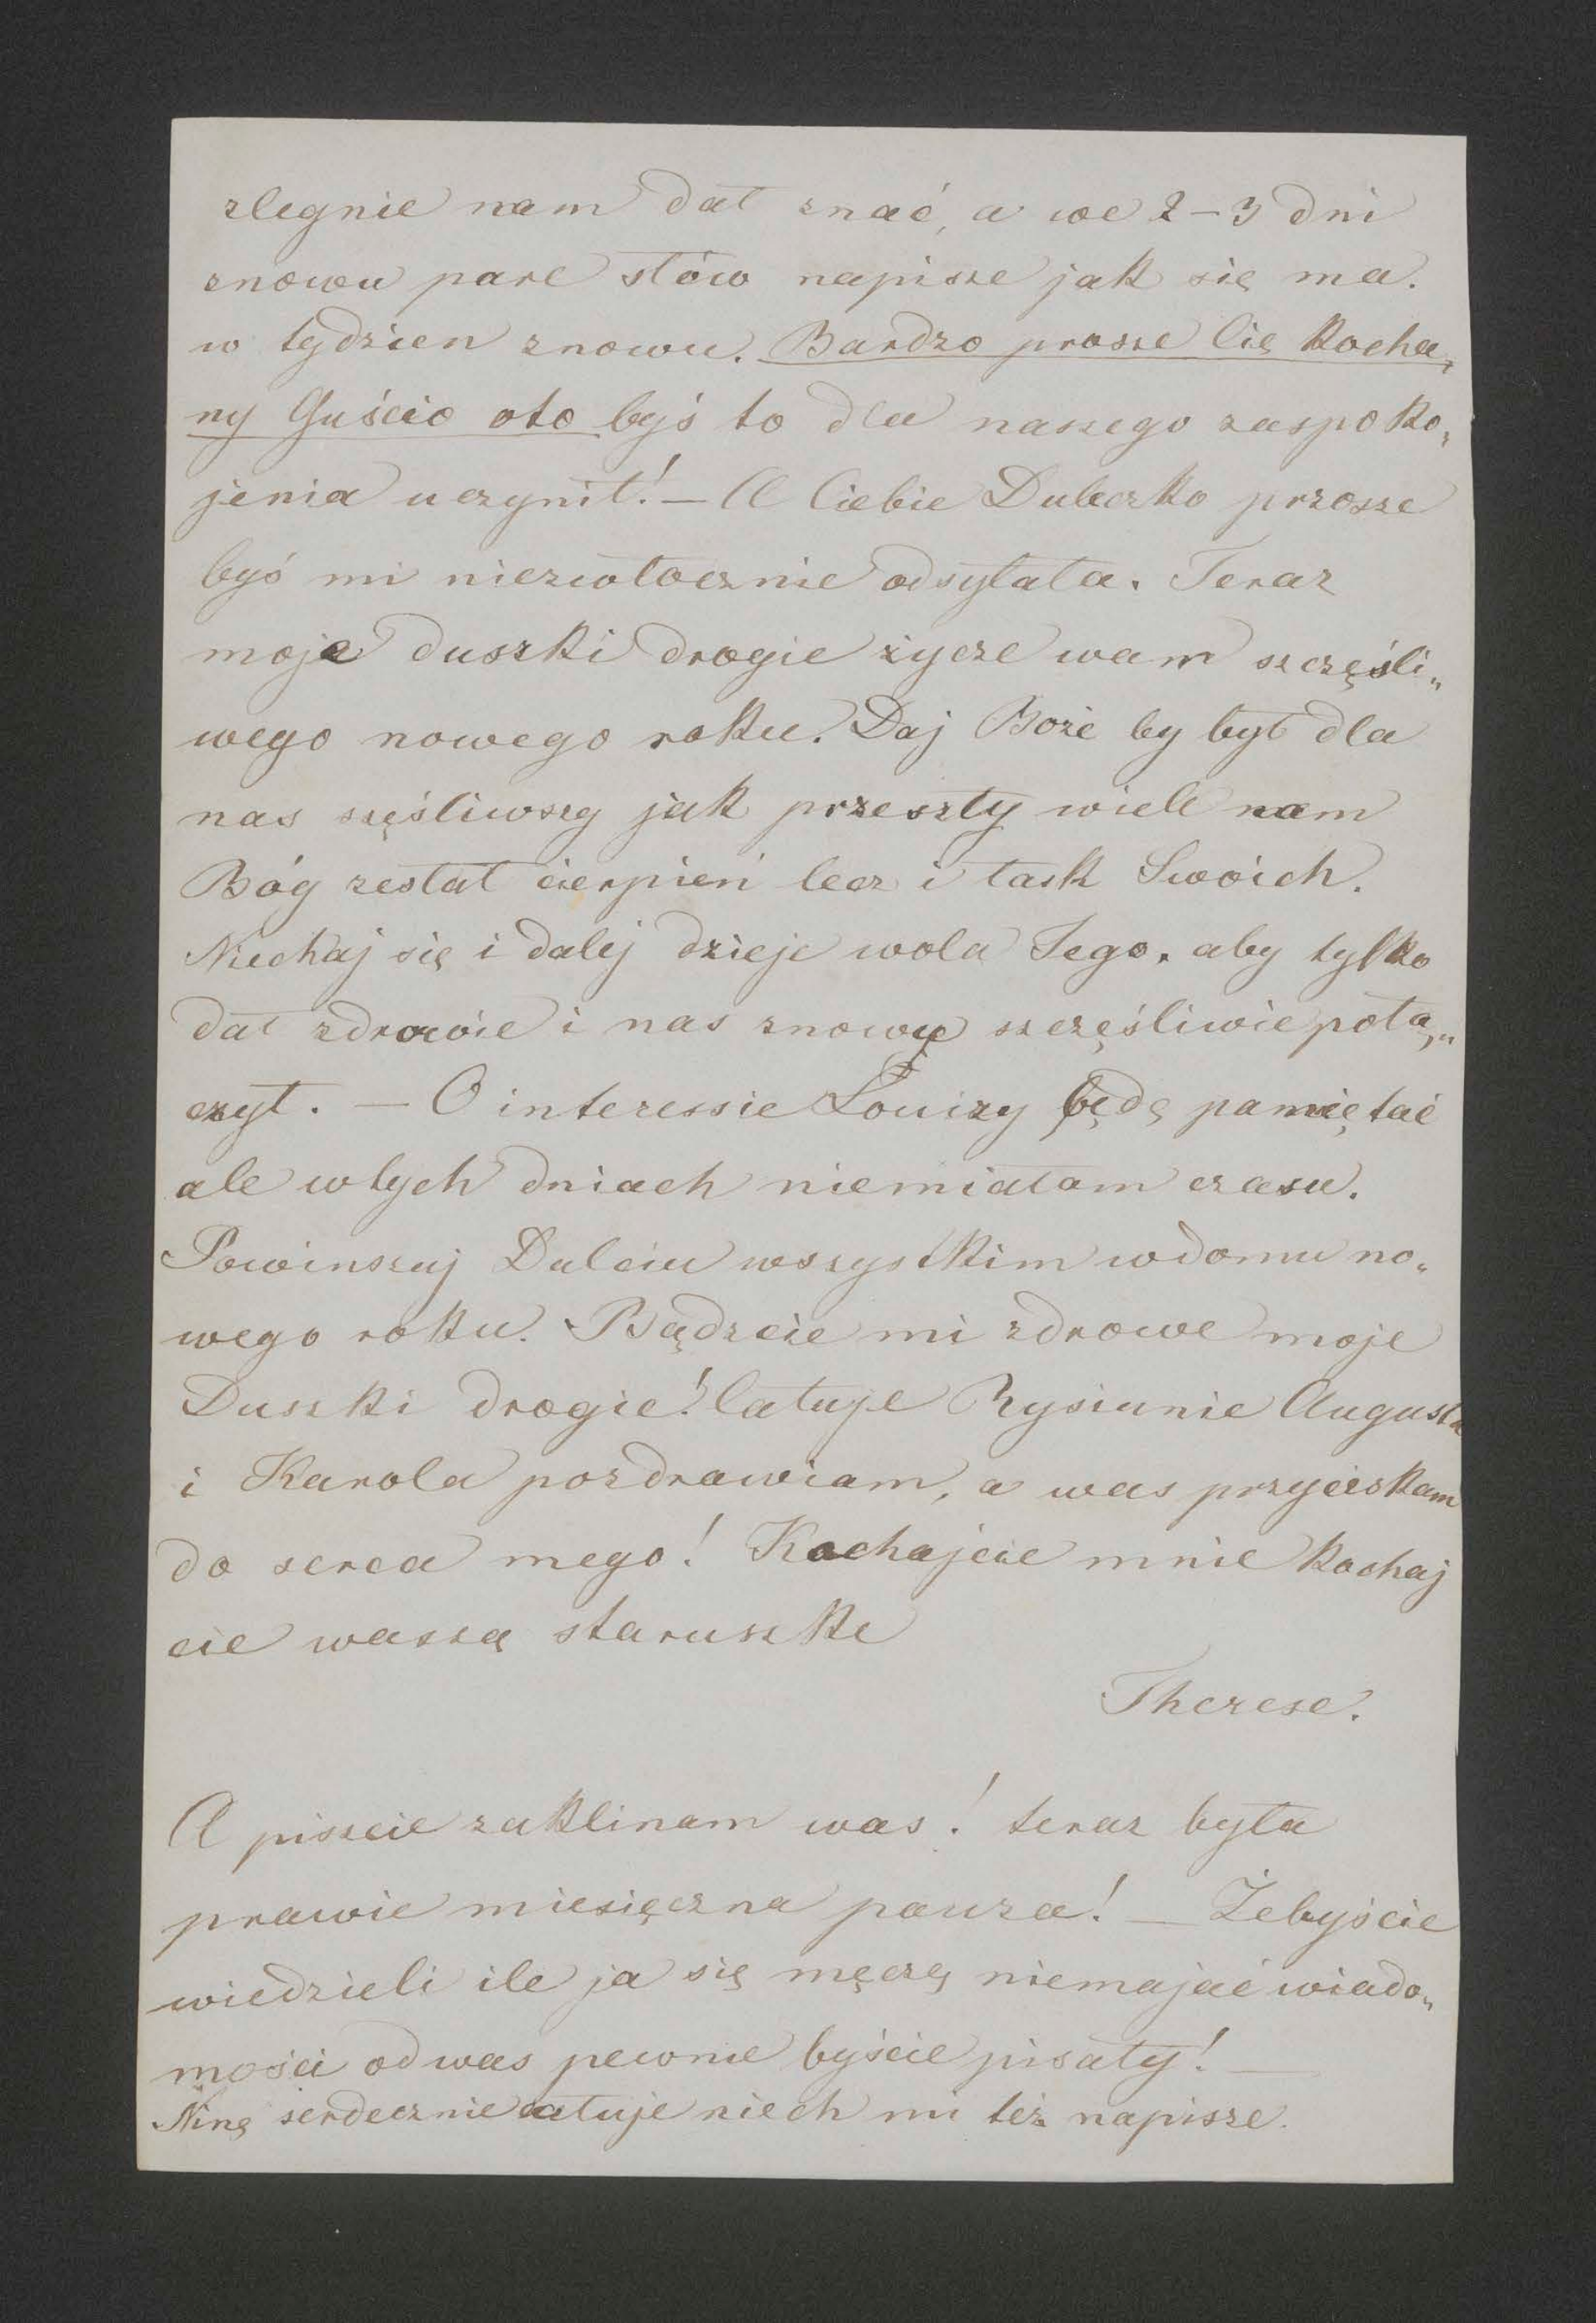 zlegnie nam dał znać, a we 2–3 dni
znowu pare słów napisze jak się ma.
w tydzien znowu. Bardzo prosze Cię kocha„
ny Guścio oto byś to dla naszego zaspoko„
jenia uczynił! – A Ciebie Duleczko przosze
byś mi niezwłocznie odsyłała. Teraz
moje duszki drogie życze wam szczęśli„
wego nowego roku. Daj Boże by był dla
nas szęśliwszy jak przeszły wiele nam
Bóg zesłał cierpień lecz i łask Swoich.
Niechaj się i dalej dzieje wola Jego. aby tylko
dał zdrowie i nas znowu szczęśliwie połą„
czył. – O interessie Louizy będę pamiętać
ale wtych dniach niemiałam czasu.
Powinszuj Dulciu wszystkim wdomu no„
wego roku. Bądzcie mi zdrowe moje
Duszki drogie! Całuje Rysiunie Augusta
i Karola pozdrawiam, a was przyciskam
do serca mego! Kochajcie mnie kochaj
cie waszą staruszke
Therese.
A piszcie zaklinam was! teraz była
prawie miesięczna pauza! – Żebyście
wiedzieli ile ja się męczę niemajać wiado„
mości odwas pewnie byście pisały! –
Ninę serdecznie całuje niech mi też napisze.